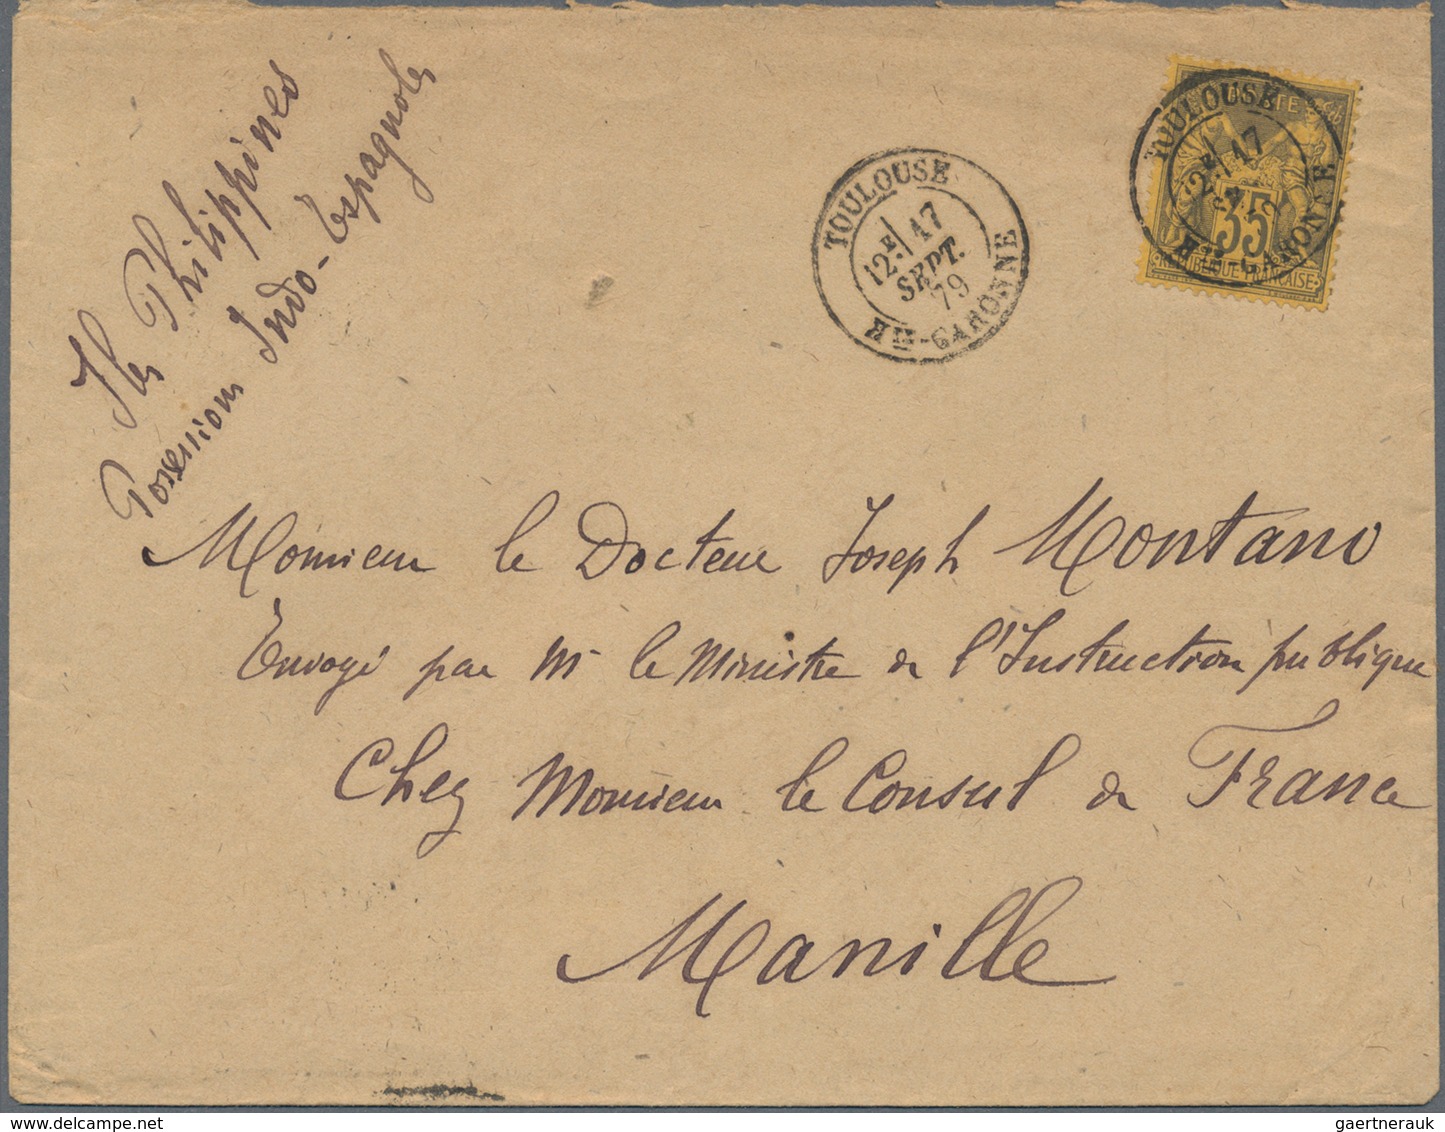 Iles Philippines
Possessions Indo-Espagnoles
TOULOUSE
12E 17
SEPT.
79
Hte-GARONNE
TOULOUSE
12E 17
35
REPUBLIQUE FRANCAISE
Hte-GARONNE
Monsieur le Docteur Joseph Montano
Envoyé par Mr le Ministre de l'Instruction publique
Chez Monsieur le Consul de France
Manille
gaertnerauk